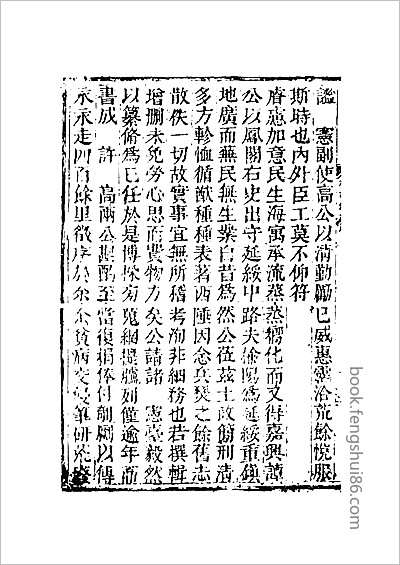 謐　憲副使高公以清勤勵已威惠霑洽荒餘悅服
斯時也內外臣工莫不仰符
睿慈加意民生海寓承流蒸蒸嚮化而又得嘉興譚
公以鳳閣右史出守延綏中路夫榆陽爲延綏重鎮
地廣而蕪民無生業自昔爲然公莅茲土政簡刑清
多方軫恤循猷種種表著西陲因念兵燹之餘舊志
散佚一切故實事宜無所稽考洵非細務也若撰輯
增刪未免勞心思而費物力矣公請諸　憲臺毅然
以纂脩爲己任於是博採旁蒐網提臚列僅逾年而
書成　許　高兩公斟酌至當復捐俸付剞劂以傳
永永走四百餘里徵序於余余貧病交侵筆研荒廢
book.fengshui86.com